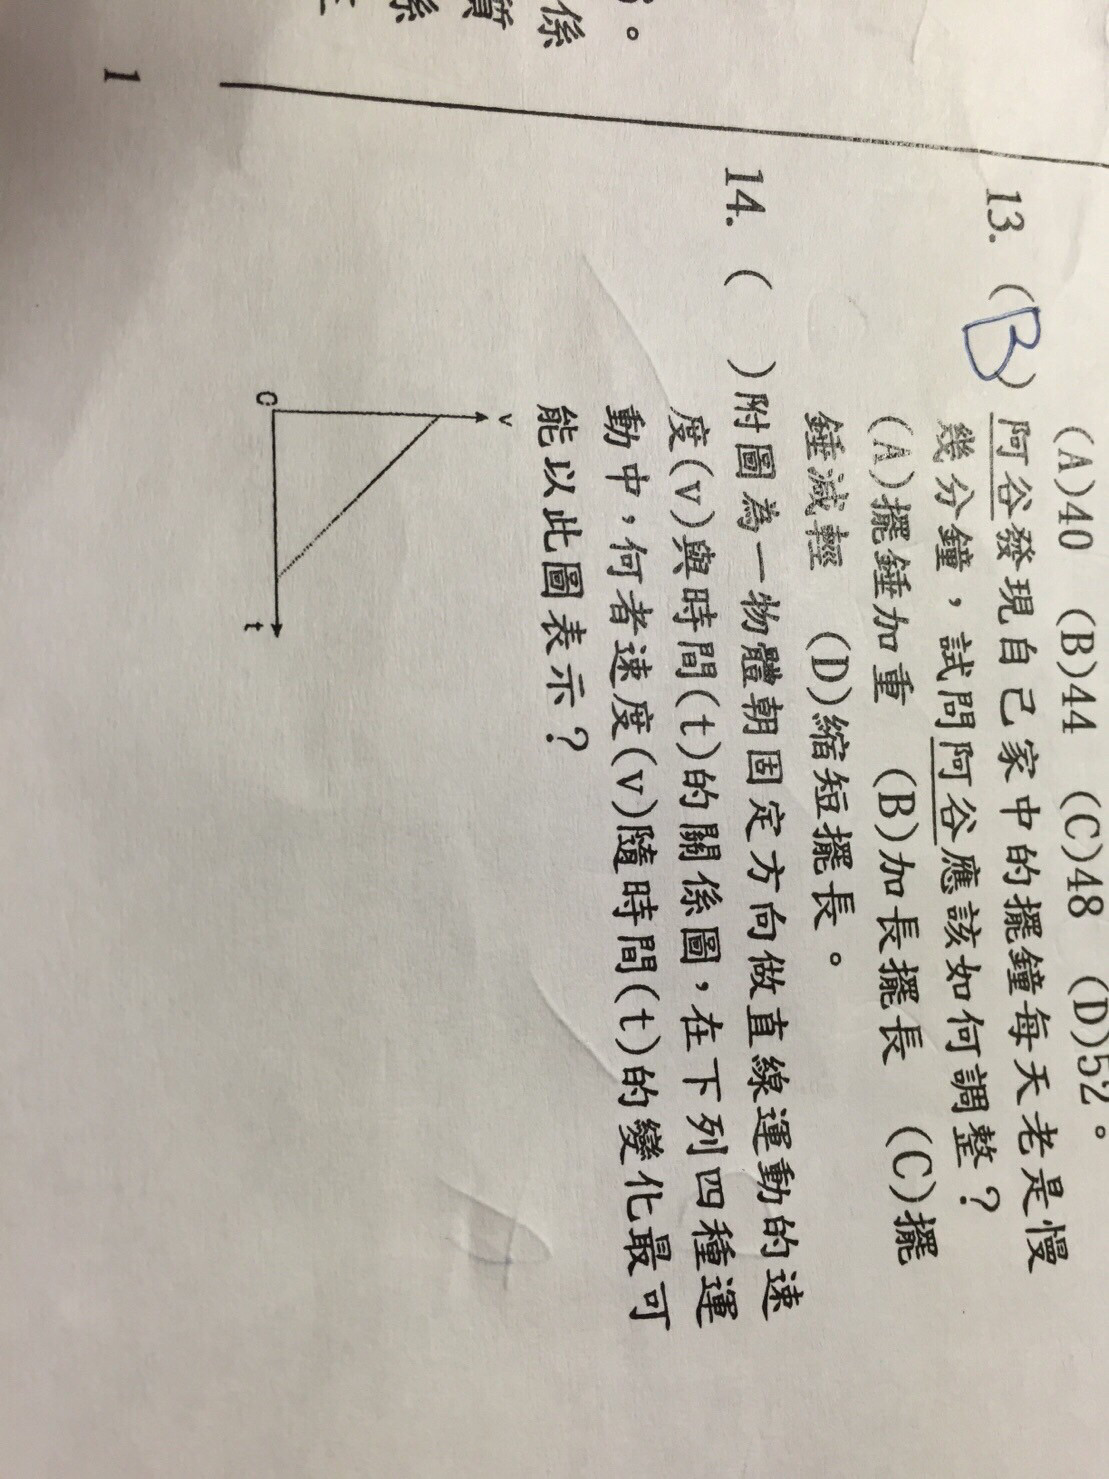 (A)40 (B)44 (C)48 (D)52。
13. (B) 阿谷發現自己家中的擺鐘每天老是慢
幾分鐘，試問阿谷應該如何調整？
(A)擺錘加重 (B)加長擺長 (C)擺
錘減輕 (D)縮短擺長。
14. ( )附圖為一物體朝固定方向做直線運動的速
度(v)與時間(t)的關係圖，在下列四種運
動中，何者速度(v)隨時間(t)的變化最可
能以此圖表示？
v
0
t
。
係
質
係
1